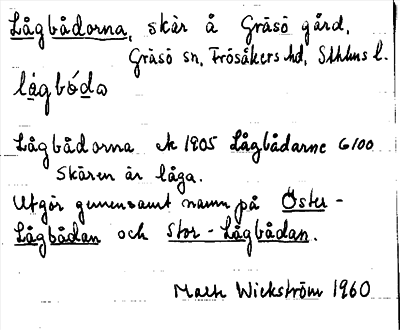 Lågbådorna, skär å Gräsö gård,
Gräsö sn, Frösåkers hd, Sthlms l.
lågbóda
Lågbådorna ek 1905 Lågbådarne 6100
Skären är låga.
Utgör gemensamt namn på Öster-
Lågbådan och Stor-Lågbådan.
Mats Wickström 1960